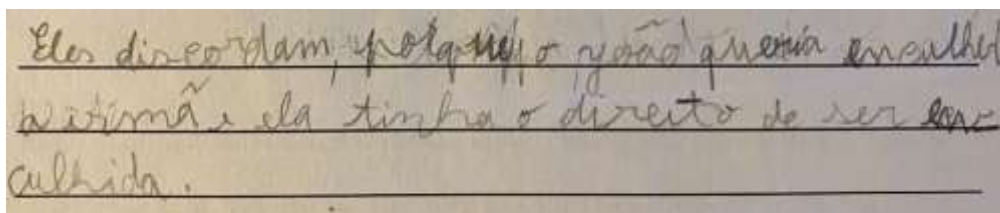 Eles discordam, porque o joão queria enculher
a irimã e ela tinha o direito de ser en-
culhida.